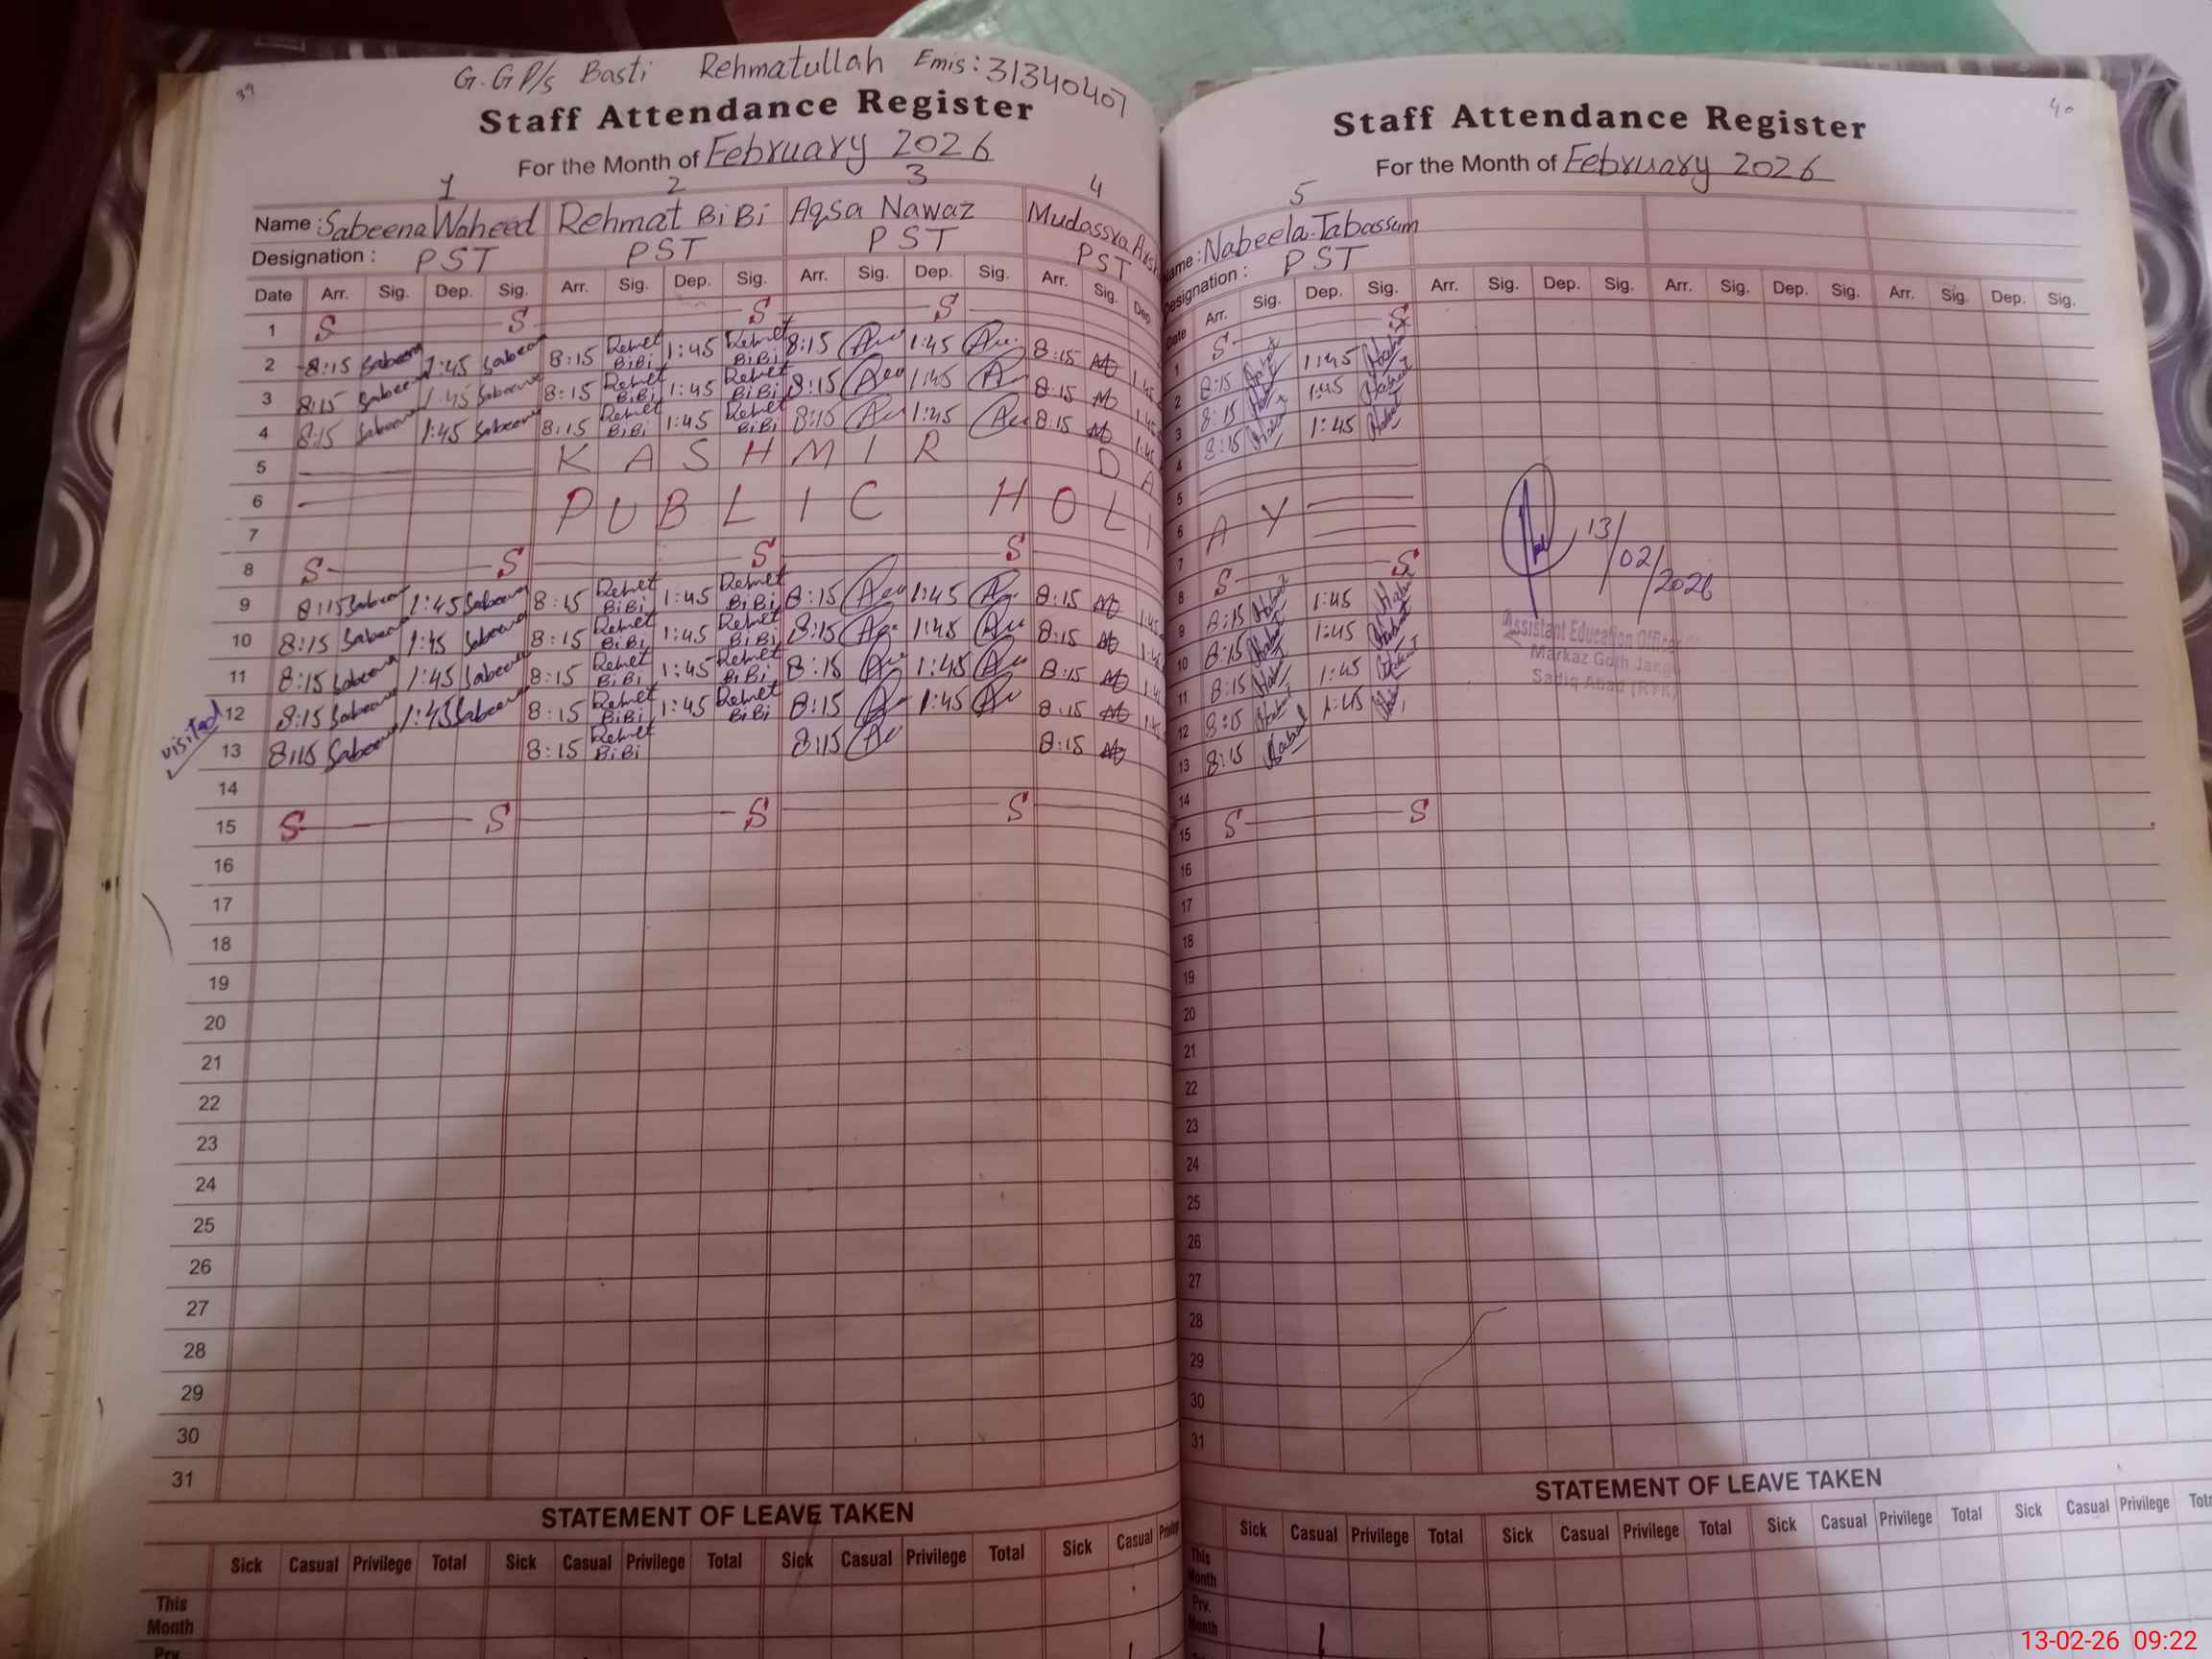 39
G.GP/s Basti Rehmatullah Emis: 31340407
Staff Attendance Register
For the Month of February 2026
1 2 3 4
Name: Sabeena Waheed Rehmat BiBi Aqsa Nawaz Mudassra
Designation: PST PST PST PST
Date Arr. Sig. Dep. Sig. Arr. Sig. Dep. Sig. Arr. Sig. Dep. Sig. Arr. Sig. Dep
1 S S S S
2 8:15 Sabeena 1:45 Sabeena 8:15 Rehmet BiBi 1:45 Rehmet BiBi 8:15 1:45 8:15 1:45
3 8:15 Sabeena 1:45 Sabeena 8:15 Rehmet BiBi 1:45 Rehmet BiBi 8:15 1:45 8:15 1:45
4 8:15 Sabeena 1:45 Sabeena 8:15 Rehmet BiBi 1:45 Rehmet BiBi 8:15 1:45 8:15 1:45
5 KASHMIR DA
6 PUBLIC HOLI
7
8 S S S S
9 8:15 Sabeena 1:45 Sabeena 8:15 Rehmet BiBi 1:45 Rehmet BiBi 8:15 1:45 8:15 1:45
10 8:15 Sabeena 1:45 Sabeena 8:15 Rehmet BiBi 1:45 Rehmet BiBi 8:15 1:45 8:15 1:45
11 8:15 Sabeena 1:45 Sabeena 8:15 Rehmet BiBi 1:45 Rehmet BiBi 8:15 1:45 8:15 1:45
visited 12 8:15 Sabeena 1:45 Sabeena 8:15 Rehmet BiBi 1:45 Rehmet BiBi 8:15 1:45 8:15 1:45
13 8:15 Sabeena 8:15 Rehmet BiBi 8:15 8:15
14
15 S S S S
16
17
18
19
20
21
22
23
24
25
26
27
28
29
30
31
STATEMENT OF LEAVE TAKEN
Sick Casual Privilege Total Sick Casual Privilege Total Sick Casual Privilege Total Sick Casual Privilege
This Month
Prv.
40
Staff Attendance Register
For the Month of February 2026
5
Name: Nabeela Tabassum
Designation: PST
Date Arr. Sig. Dep. Sig. Arr. Sig. Dep. Sig. Arr. Sig. Dep. Sig. Arr. Sig. Dep. Sig.
1 S S
2 8:15 1:45
3 8:15 1:45
4 8:15 1:45
5
6 AY
7
8 S S
9 8:15 1:45
10 8:15 1:45
11 8:15 1:45
12 8:15 1:45
13 8:15
14
15 S S
16
17
18
19
20
21
22
23
24
25
26
27
28
29
30
31
13/02/2026
Assistant Education Officer
Markaz Goth Jangu
Sadiq Abad (RYK)
STATEMENT OF LEAVE TAKEN
Sick Casual Privilege Total Sick Casual Privilege Total Sick Casual Privilege Total Sick Casual Privilege Tot
This Month
Prv. Month
13-02-26 09:22